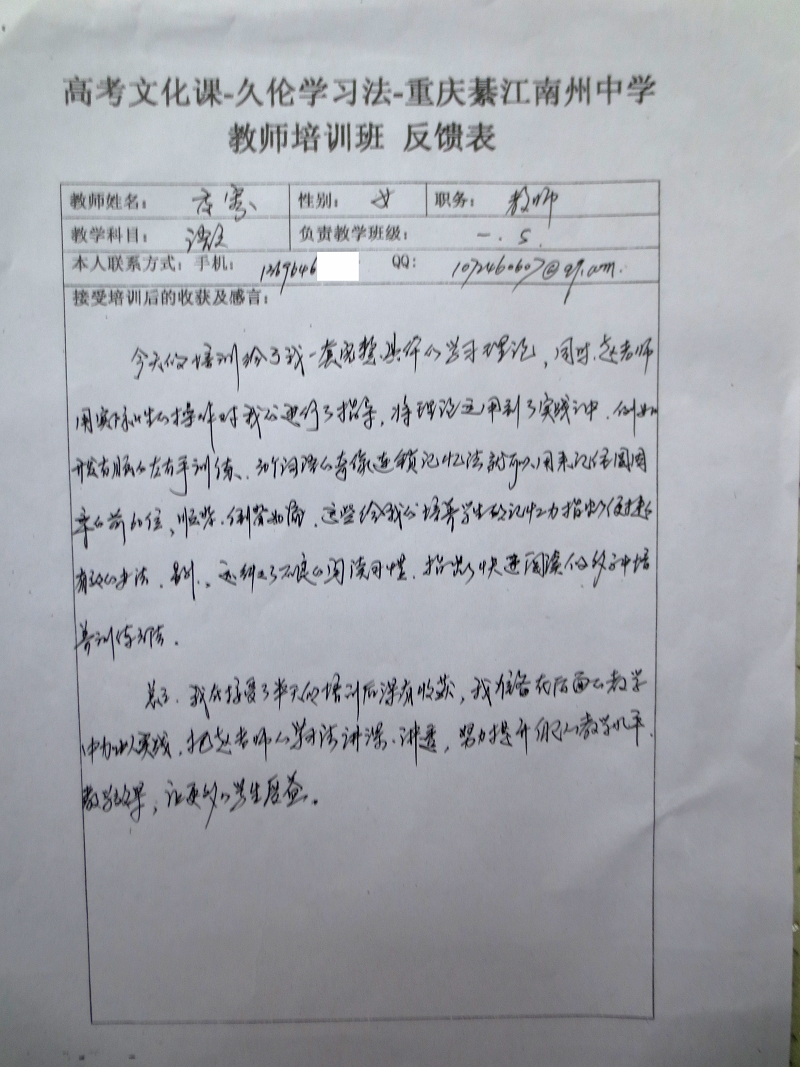 高考文化课-久伦学习法-重庆綦江南州中学
教师培训班 反馈表
教师姓名： 性别：女 职务：教师
教学科目：语文 负责教学班级：一.5.
本人联系方式：手机：1369646 QQ：1072460607@qq.com.
接受培训后的收获及感言：
今天的培训给了我一套完整具体的学习理论，同时，赵老师
用实际性的操作对我们进行了指导，将理论运用到了实践之中．例如
开发右脑的左右手训练、30个词语的奇像连锁记忆法就可以用来记住圆周
率的前60位，顺背、倒背如流．这些给我们培养学生的记忆力指出了便捷
有效的办法．另外，还纠正了不良的阅读习惯．指出了快速阅读的终身培
养训练方法．
总之．我在接受了半天的培训后深有收获，我准备在后面的教学
中加以实践．把赵老师的学习法讲深、讲透，努力提升自己的教学水平．
教学效果，让更多的学生受益．